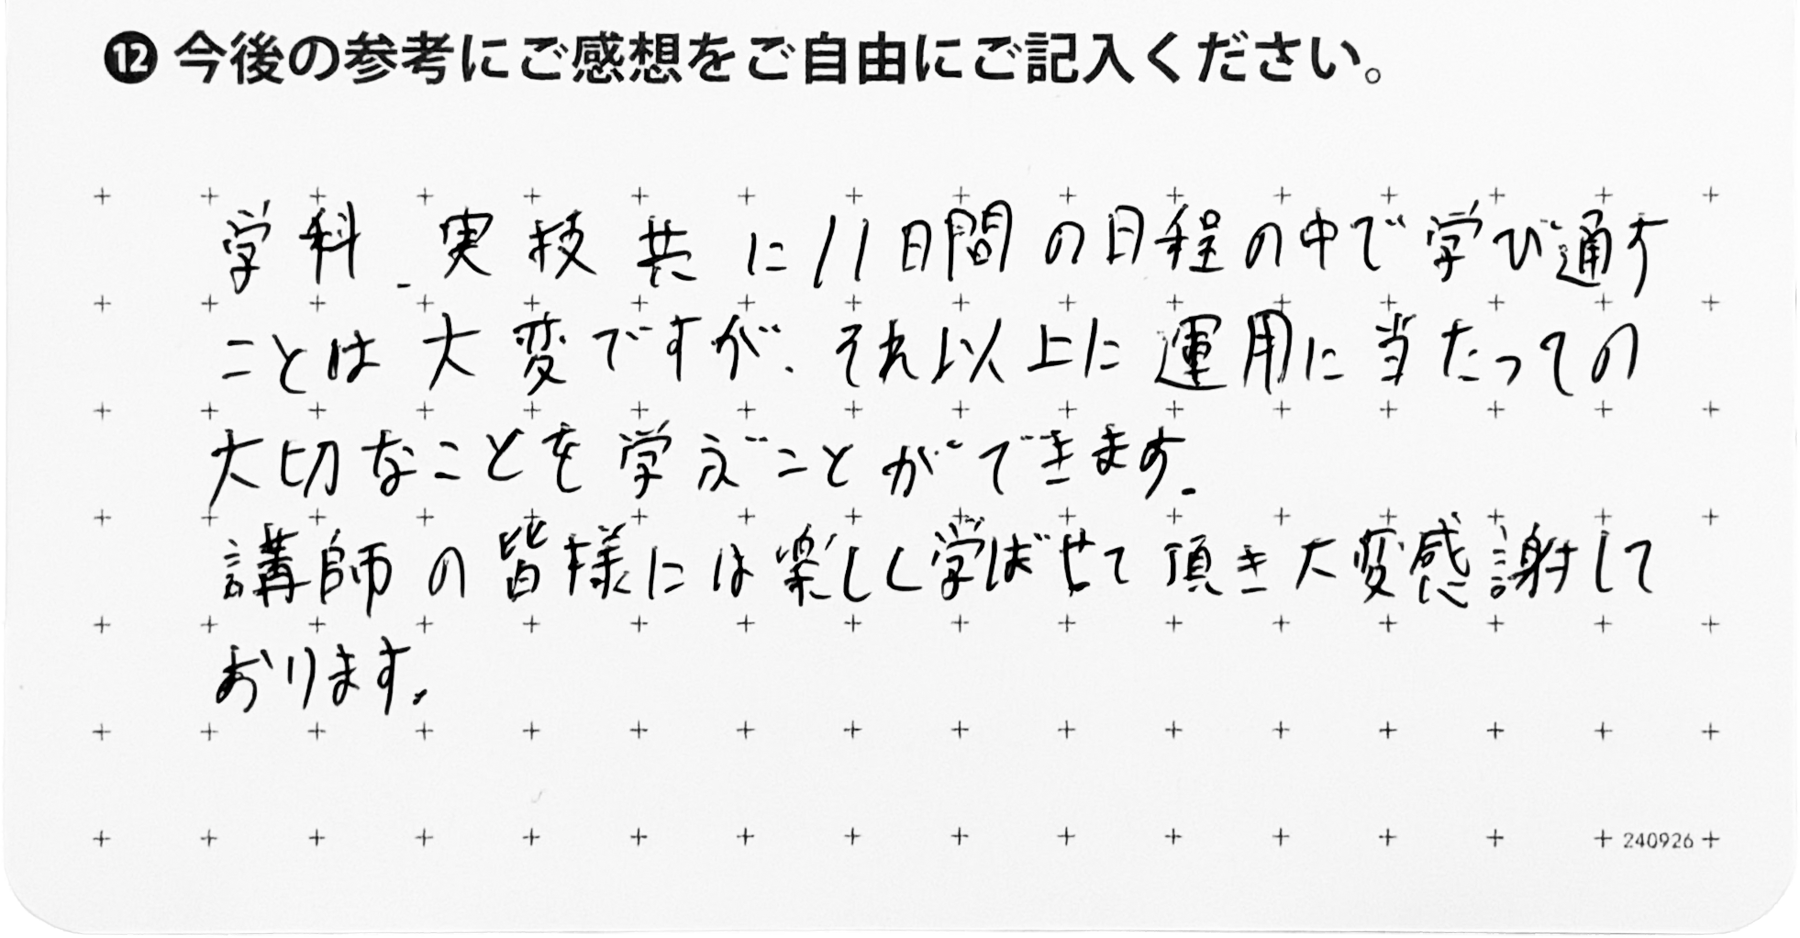 ⓬ 今後の参考にご感想をご自由にご記入ください。
学科、実技共に11日間の日程の中で学び通す
ことは大変ですが、それ以上に運用に当たっての
大切なことを学ぶことができます。
講師の皆様には楽しく学ばせて頂き大変感謝して
おります。
240926